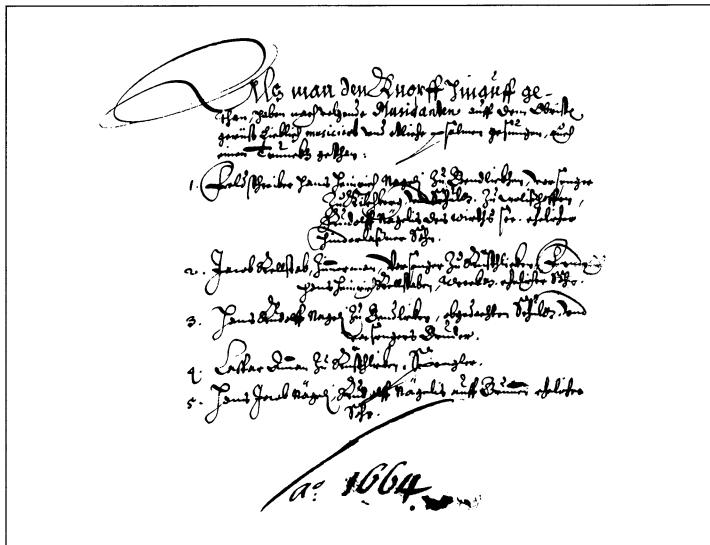 Als man den Knopff hinauff ge-
than, haben nachvolgende Musicanten auff dem Obristen
gerüst lieblich musiciert und etliche psalmen gesungen, auch
einen Trunckh gethan:
1. Feldschreiber Hans Heinrich Nägeli zu Bendlickhen, vorsenger
zu Kilchberg, und Schulm. zu Wolishoffen,
Rudolff Nägelis des wirths sel. ehelicher
hinderlaßner Sohn.
2. Jacob Kellstab, Zimerman, Vorsenger zu Rüschlicken,
Hans Heinrich Kellstaben, ehelicher Sohn.
3. Hans Rudolff Nägeli zu Bendlicken, obgedachten Schulm. und
vorsengers Bruder.
4. Caspar zu Rüschlicken,
5. Hans Jacob Nägeli, Rudolff Nägelis auff Brunen ehelicher
Sohn.
aº. 1664.